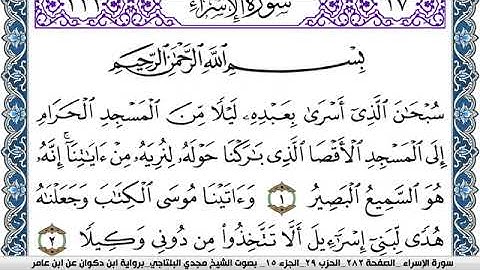 ١١١ سورة الإسراء ١٧
بِسْمِ اللَّهِ الرَّحْمَٰنِ الرَّحِيمِ
سُبْحَانَ الَّذِي أَسْرَىٰ بِعَبْدِهِ لَيْلًا مِنَ الْمَسْجِدِ الْحَرَامِ
إِلَى الْمَسْجِدِ الْأَقْصَا الَّذِي بَارَكْنَا حَوْلَهُ لِنُرِيَهُ مِنْ ءَايَاتِنَا إِنَّهُ
هُوَ السَّمِيعُ الْبَصِيرُ ١ وَءَاتَيْنَا مُوسَى الْكِتَابَ وَجَعَلْنَاهُ
هُدًى لِبَنِي إِسْرَاءِيلَ أَلَّا تَتَّخِذُوا مِنْ دُونِي وَكِيلًا ٢
سورة الإسراء_ الصفحة ٢٨٢_ الحزب ٢٩_ الجزء ١٥_ بصوت الشيخ مجدي البلتاجي_ برواية ابن ذكوان عن ابن عامر